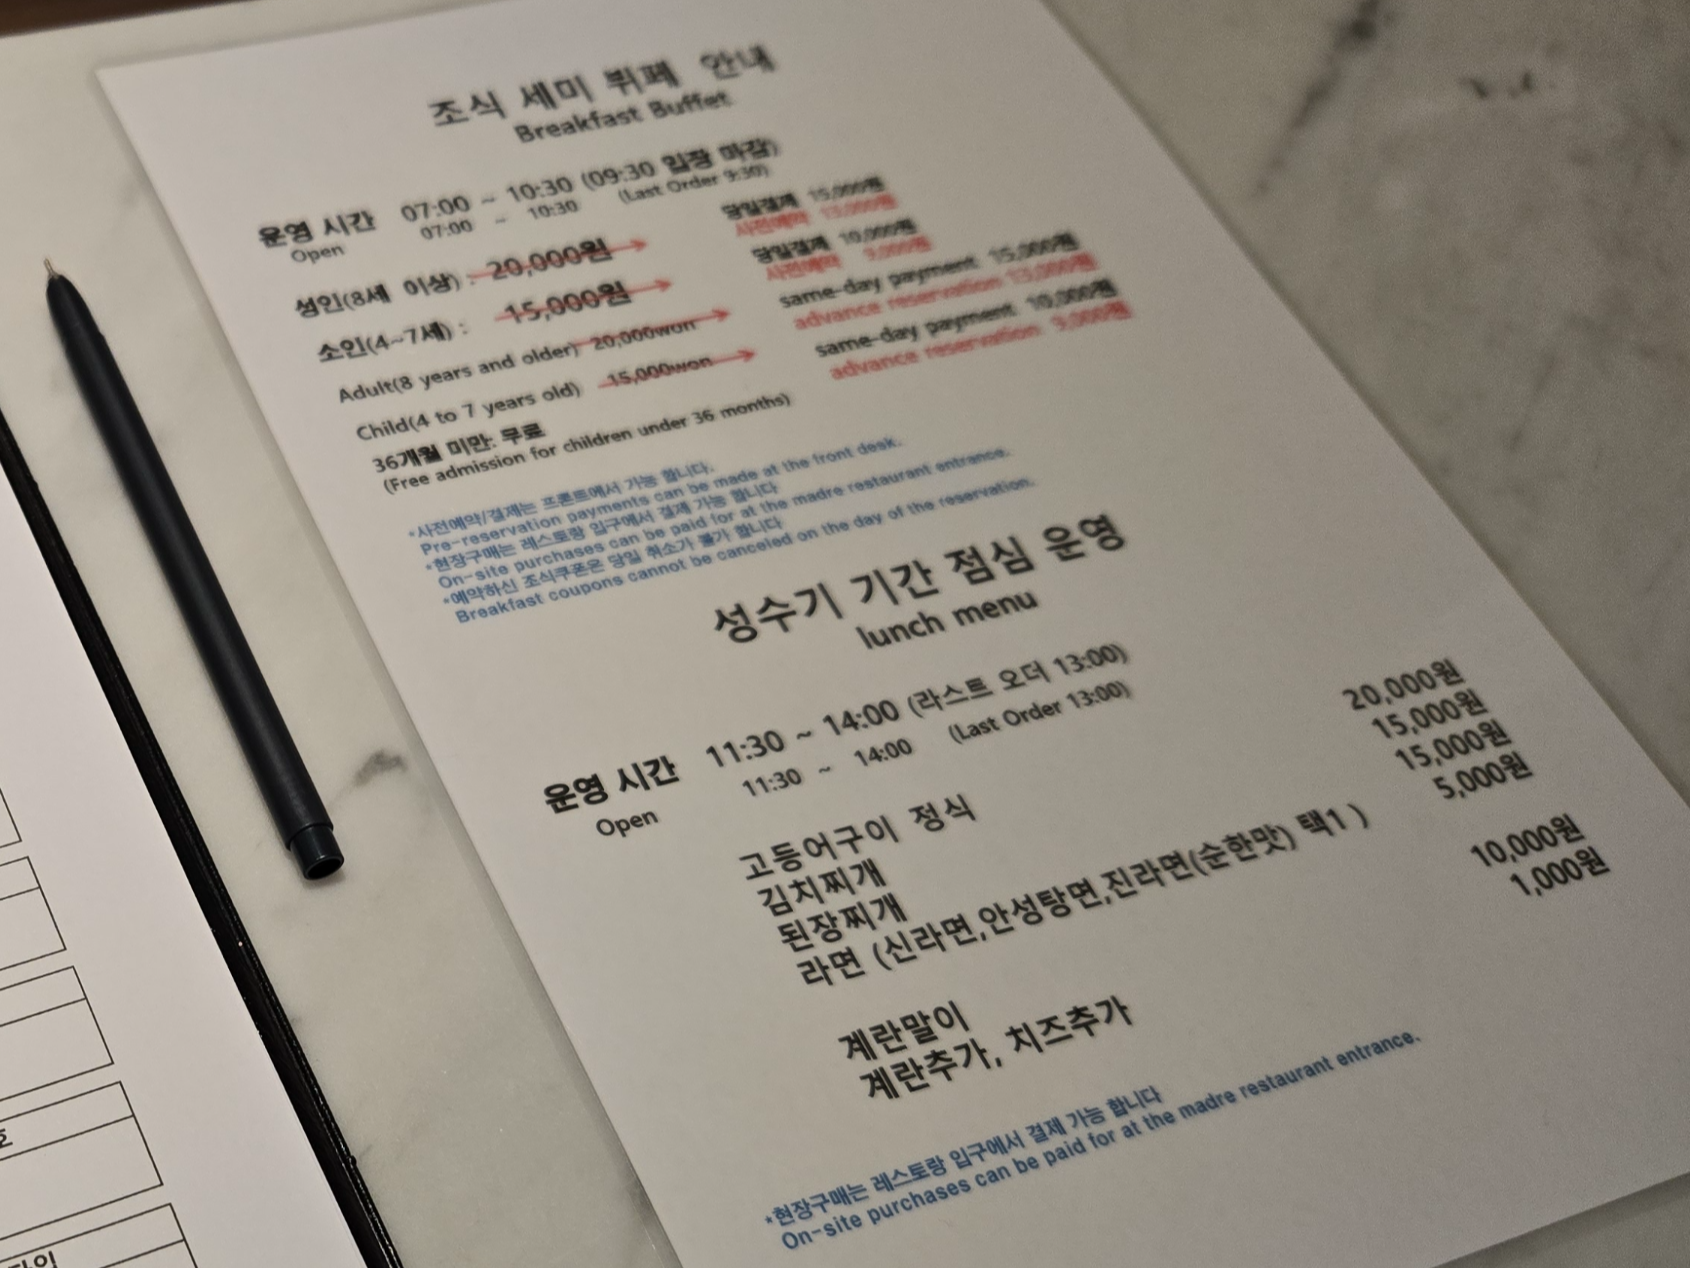 조식 세미 뷔페 안내
Breakfast Buffet
운영 시간 07:00 ~ 10:30 (09:30 입장 마감)
Open 07:00 ~ 10:30 (Last Order 9:30)
성인(8세 이상) : 20,000원 당일결제 15,000원
사전예약 13,000원
소인(4~7세) : 15,000원 당일결제 10,000원
사전예약 9,000원
Adult(8 years and older) 20,000won same-day payment 15,000원
advance reservation 13,000원
Child(4 to 7 years old) 15,000won same-day payment 10,000원
advance reservation 9,000원
36개월 미만: 무료
(Free admission for children under 36 months)
*사전예약/결제는 프론트에서 가능 합니다.
Pre-reservation payments can be made at the front desk.
*현장구매는 레스토랑 입구에서 결제 가능 합니다
On-site purchases can be paid for at the madre restaurant entrance.
*예약하신 조식쿠폰은 당일 취소가 불가 합니다
Breakfast coupons cannot be canceled on the day of the reservation.
성수기 기간 점심 운영
lunch menu
운영 시간 11:30 ~ 14:00 (라스트 오더 13:00)
Open 11:30 ~ 14:00 (Last Order 13:00)
고등어구이 정식 20,000원
김치찌개 15,000원
된장찌개 15,000원
라면 (신라면,안성탕면,진라면(순한맛) 택1 ) 5,000원
계란말이 10,000원
계란추가, 치즈추가 1,000원
*현장구매는 레스토랑 입구에서 결제 가능 합니다
On-site purchases can be paid for at the madre restaurant entrance.